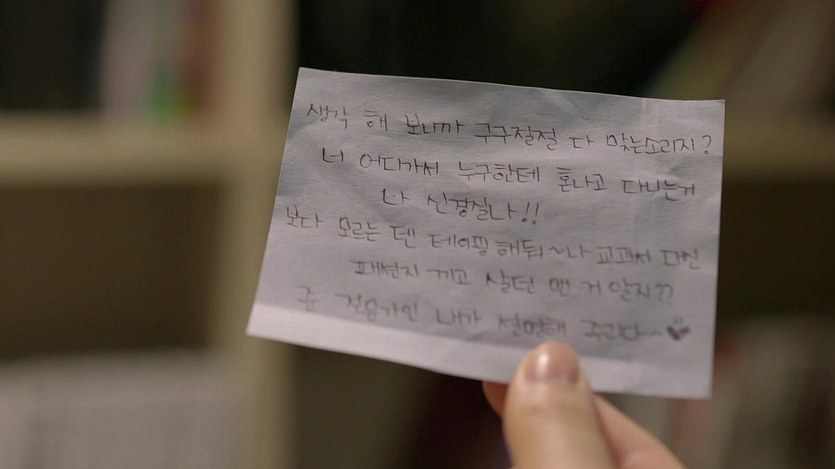 생각 해 보니까 구구절절 다 맞는소리지?
너 어디가서 누구한테 혼나고 다니는거
나 신경질나!!
보다 모르는 덴 테이핑해둬~나 교과서 대신
패션지 끼고 살던 앤 거 알지??
준 전문가인 내가 설명해 주리다~